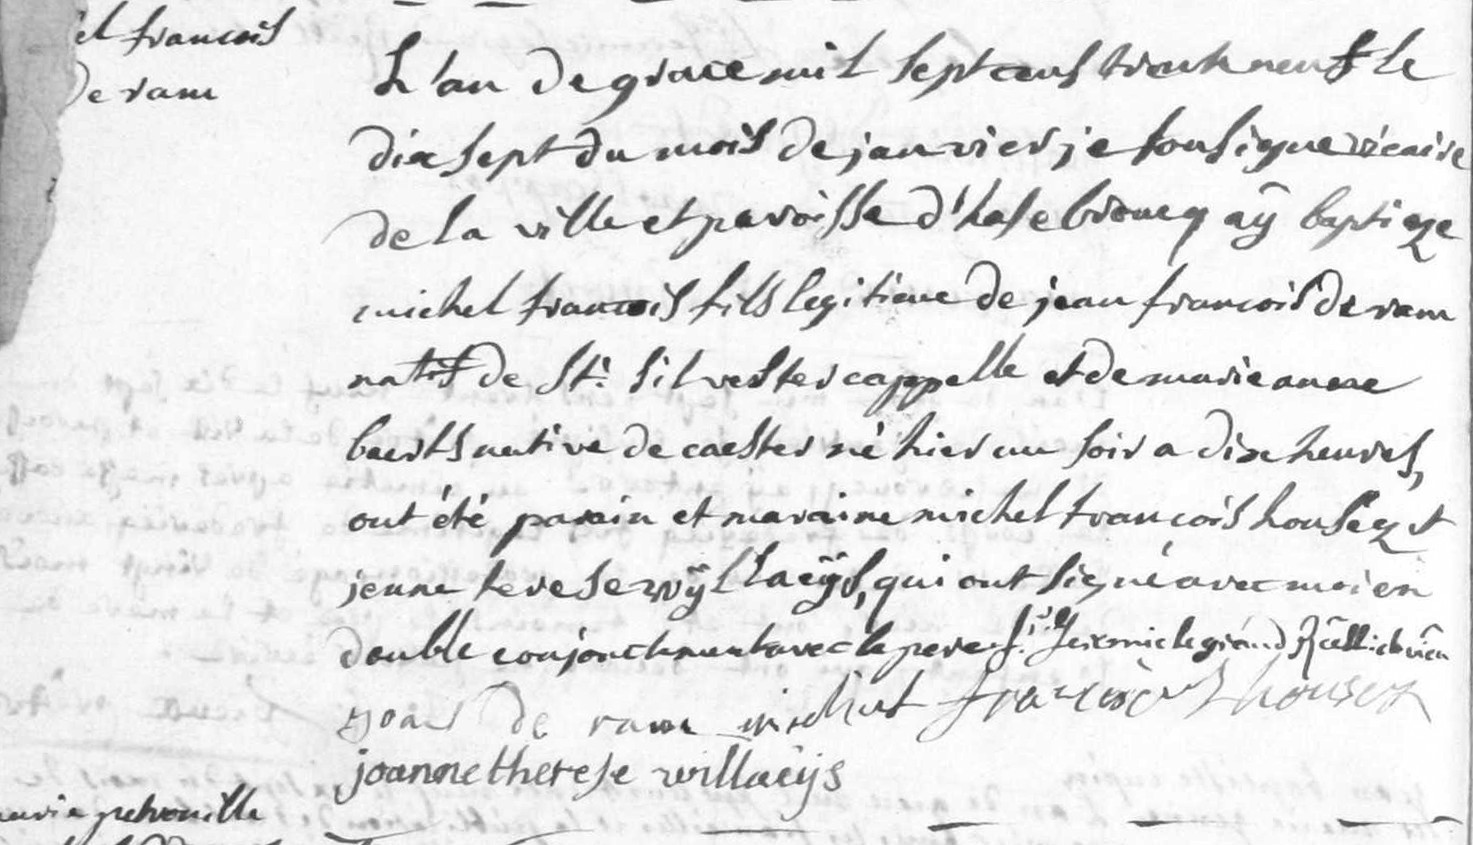 el francois
De ram
L'an De grace mil sept cens trente neuf le
dix sept du mois de janvier je sousigne vicaire
de la ville et paroisse d'hasebroucq aÿ baptize
michel francois fils legitime de jean francois De ram
natif de St. Silvester cappelle et de marie anne
baerts native de caester né hier au soir a dix heures,
ont été parain et maraine michel francois housez et
jenne terese wÿllaeÿs, qui ont signé avec moi en
double conjonctement avec le pere f. Jeromie legrand
joan de ram michiel francois housez
joanne therese willaeijs
marie petronille